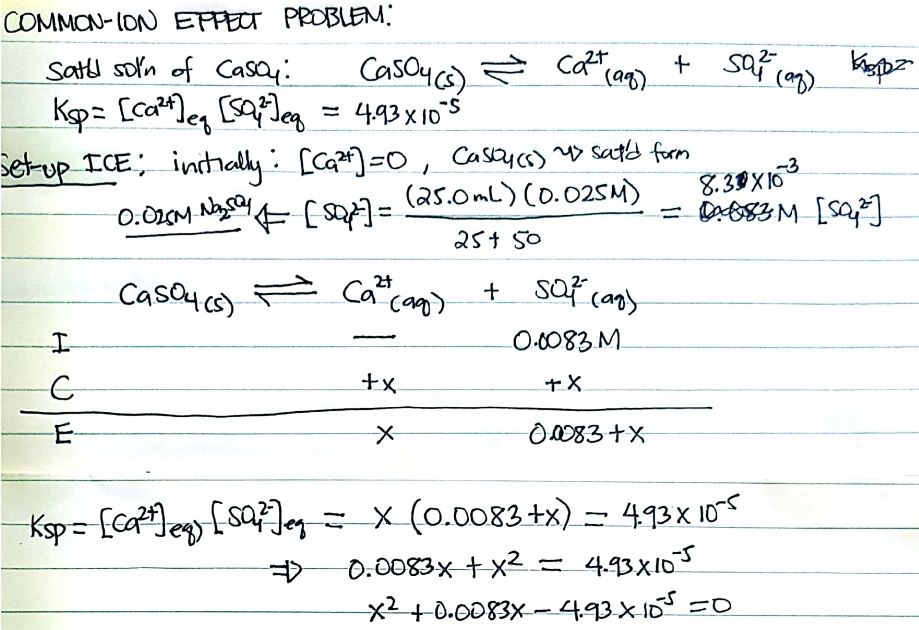 COMMON-ION EFFECT PROBLEM:
Sat'd sol'n of CaSO₄: CaSO₄(s) ⇌ Ca²⁺(aq) + SO₄²⁻(aq) Ksp=
Ksp = [Ca²⁺]eq [SO₄²⁻]eq = 4.93 x 10⁻⁵
Set-up ICE; initially: [Ca²⁺]=0, CaSO₄(s) ⇝ sat'd form
0.025M Na₂SO₄ ⇐ [SO₄²⁻] = (25.0mL)(0.025M) / 25 + 50 = 8.3 x 10⁻³ M [SO₄²⁻]
CaSO₄(s) ⇌ Ca²⁺(aq) + SO₄²⁻(aq)
I — 0.0083M
C +x +x
E x 0.0083+x
Ksp = [Ca²⁺]eq) [SO₄²⁻]eq = x (0.0083+x) = 4.93 x 10⁻⁵
⇒ 0.0083x + x² = 4.93 x 10⁻⁵
x² + 0.0083x − 4.93 x 10⁻⁵ = 0